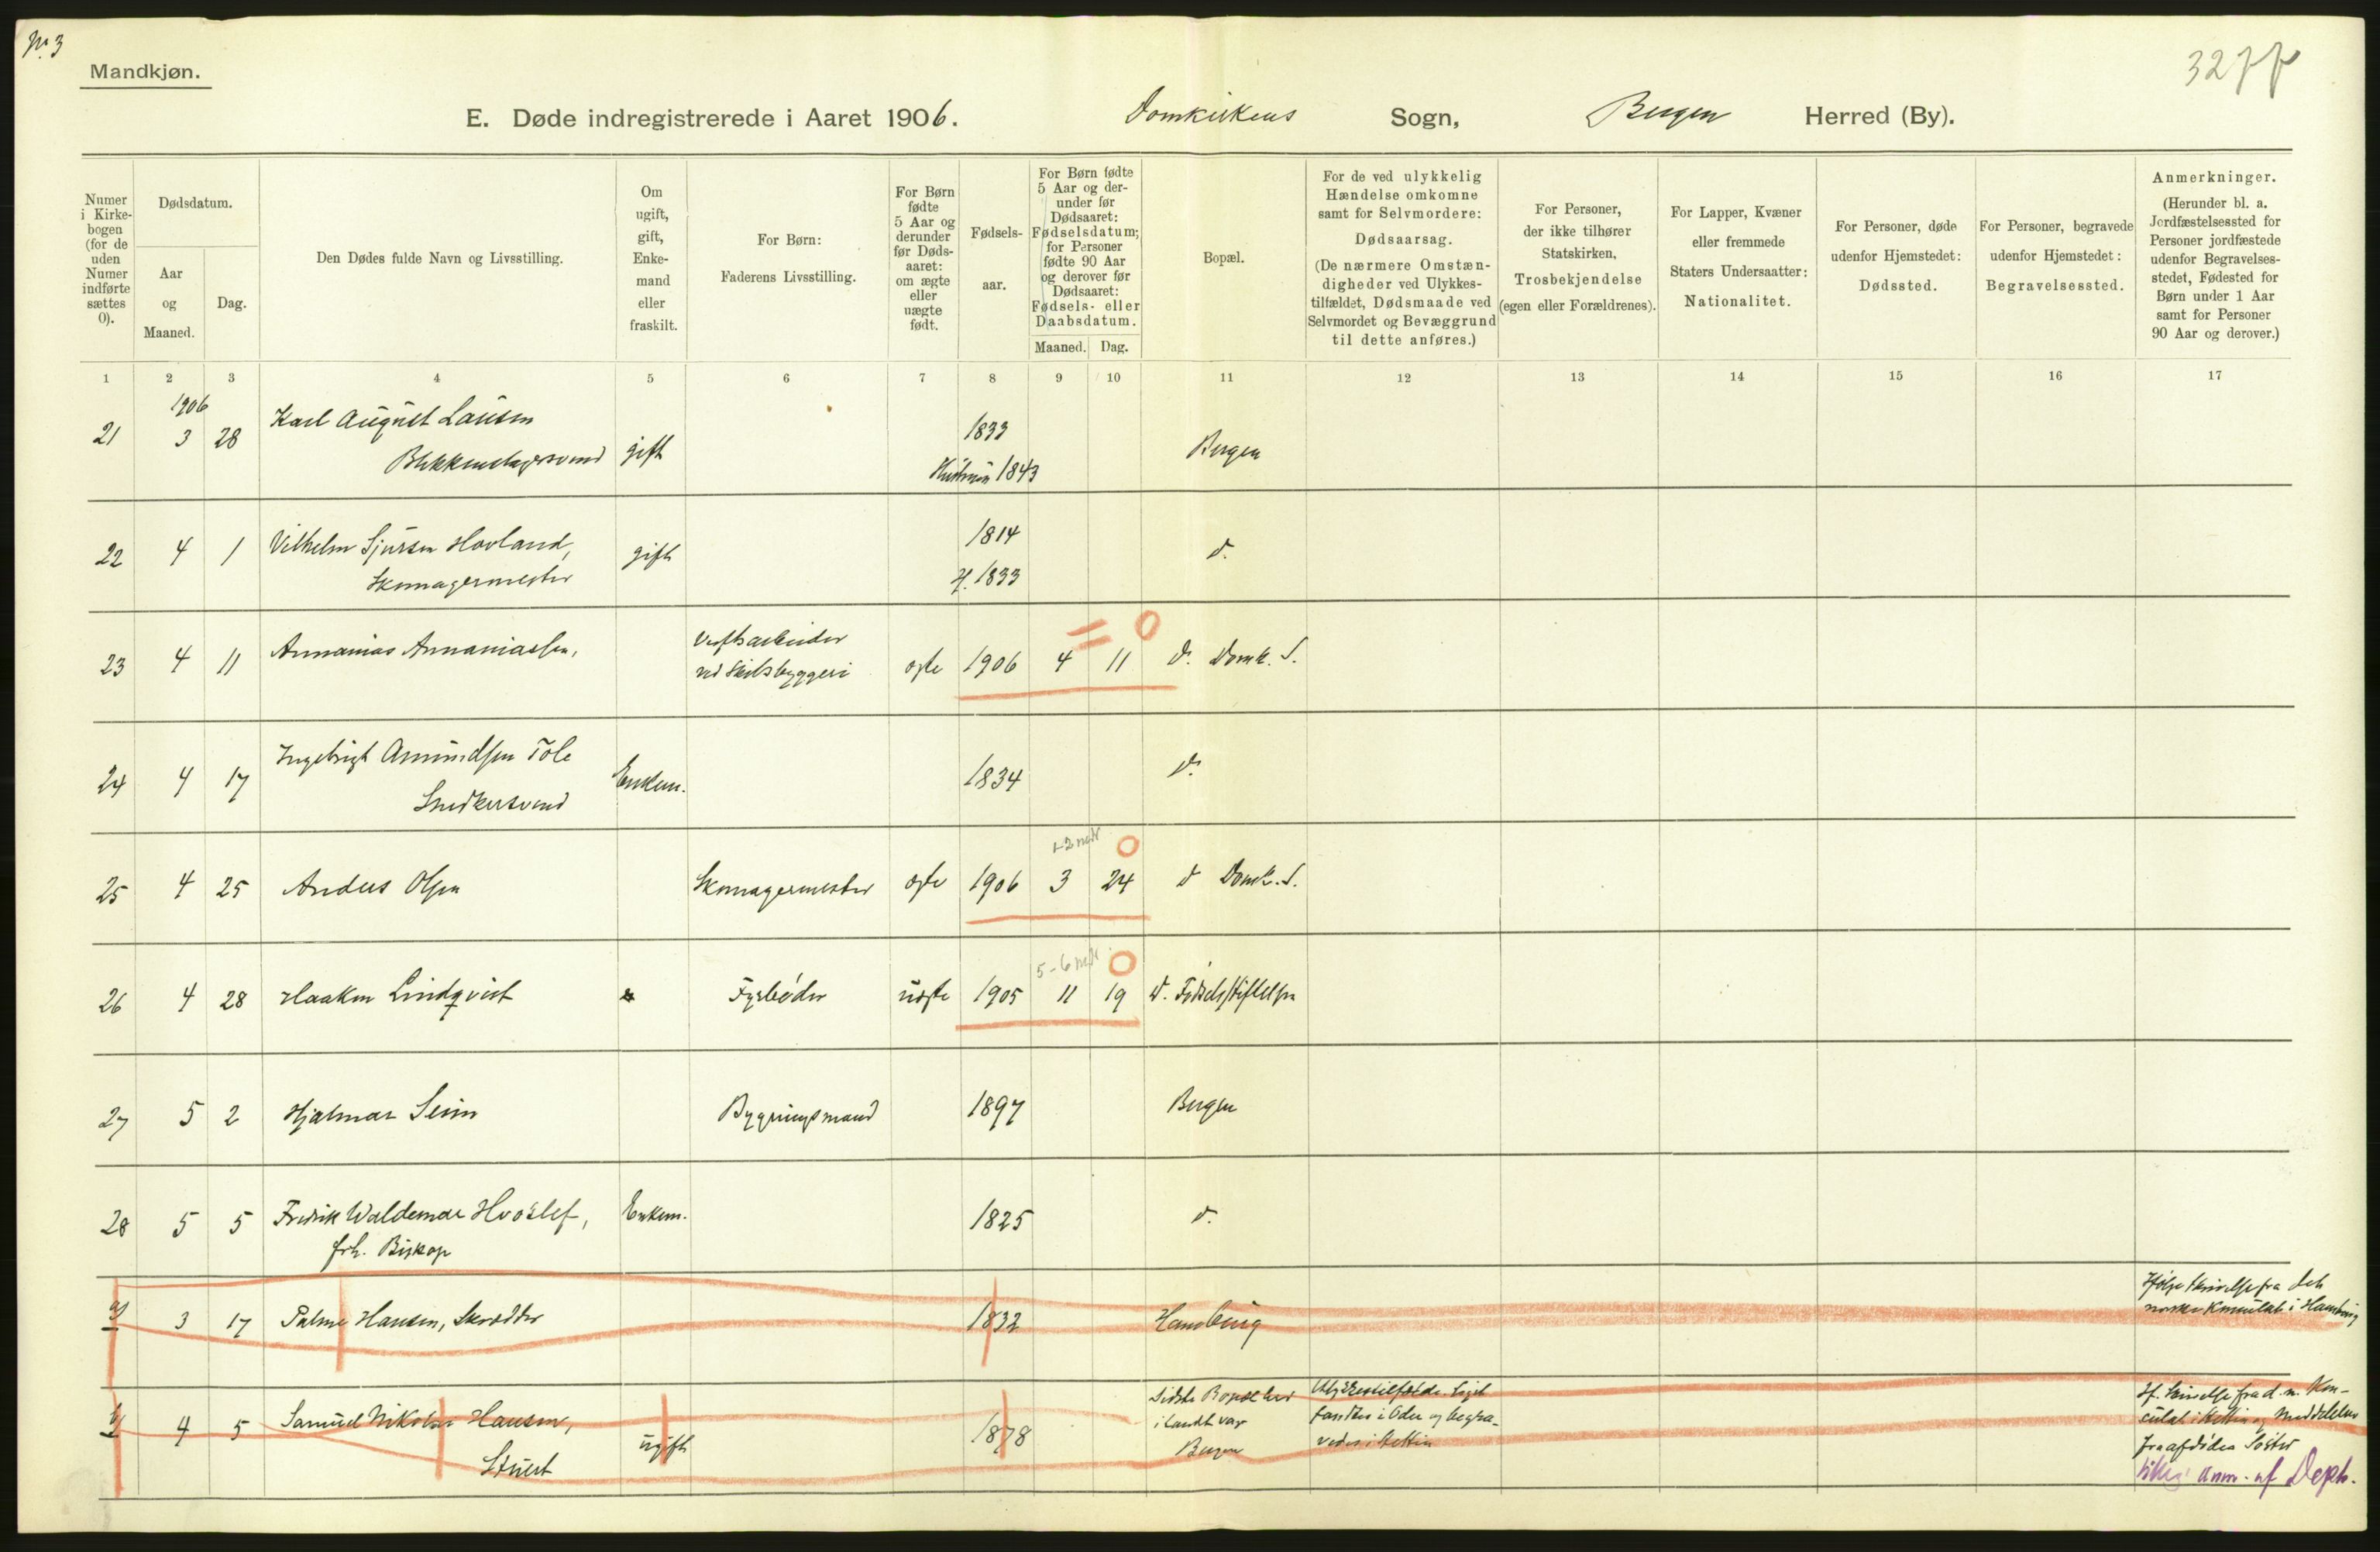 No 3
Mandkjøn.
E. Døde indregistrerede i Aaret 1906. Domkirkens Sogn, Bergen Herred (By).
Numer
i Kirke-
bogen
(for de
uden
Numer
indførte
sættes
0).
Dødsdatum.
Aar
og
Maaned.
Dag.
Den Dødes fulde Navn og Livsstilling.
Om
ugift,
gift,
Enke-
mand
eller
fraskilt.
For Børn:
Faderens Livsstilling.
For Børn
fødte
5 Aar og
derunder
før Døds-
aaret:
om ægte
eller
uægte
født.
Fødsels-
aar.
For Børn fødte
5 Aar og der-
under før
Dødsaaret:
Fødselsdatum;
for Personer
fødte 90 Aar
og derover før
Dødsaaret:
Fødsels- eller
Daabsdatum.
Maaned. Dag.
Bopæl.
For de ved ulykkelig
Hændelse omkomne
samt for Selvmordere:
Dødsaarsag.
(De nærmere Omstæn-
digheder ved Ulykkes-
tilfældet, Dødsmaade ved
Selvmordet og Bevæggrund
til dette anføres.)
For Personer,
der ikke tilhører
Statskirken,
Trosbekjendelse
(egen eller Forældrenes).
For Lapper, Kvæner
eller fremmede
Staters Undersaatter:
Nationalitet.
For Personer, døde
udenfor Hjemstedet:
Dødssted.
For Personer, begravede
udenfor Hjemstedet:
Begravelsessted.
Anmerkninger.
(Herunder bl. a.
Jordfæstelsessted for
Personer jordfæstede
udenfor Begravelses-
stedet, Fødested for
Børn under 1 Aar
samt for Personer
90 Aar og derover.)
1 2 3 4 5 6 7 8 9 10 11 12 13 14 15 16 17
1906
21 3 28 Karl August Lausen gift 1833 Bergen
Blikkenslagersvend Hustruen 1843
22 4 1 Vilhelm Sjursen Hovland, gift 1814 d.
Skomagermester H. 1833
23 4 11 Annanias Annaniassen, Verftsarbeider ægte 1906 4 11 d. Domk. S.
ved Skibsbyggeri
24 4 17 Ingebrigt Amundsen Tole Enkem. 1834 d.
Snedkersvend
1-2 mdr 0
25 4 25 Anders Olsen Skomagermester ægte 1906 3 24 d Domk. S.
5-6 mdr 0
26 4 28 Haakon Lindqvist Fyrbøder uægte 1905 11 19 d. Fødselsstiftelsen
27 5 2 Hjalmar Seim Bygningsmand 1897 Bergen
28 5 5 Fredrik Waldemar Hvoslef, Enkem. 1825 d.
frh. Biskop
a) 3 17 Palme Hansen, Skrædder 1832 Hamburg
Ifølge Skrivelse fra det
norske Konsulat i Hamburg
b) 4 5 Samuel Nikolai Hansen, ugift 1878
Stuert
Sidste Bopæl her
i Landet var
Bergen
Ulykkestilfælde. Liget
fandtes i Oder og begra-
vedes i Stettin
If. Skrivelse fra d. n. Kon-
sulat i Stettin og Meddelelse
fra afdødes Søster
Anm. af Dept.